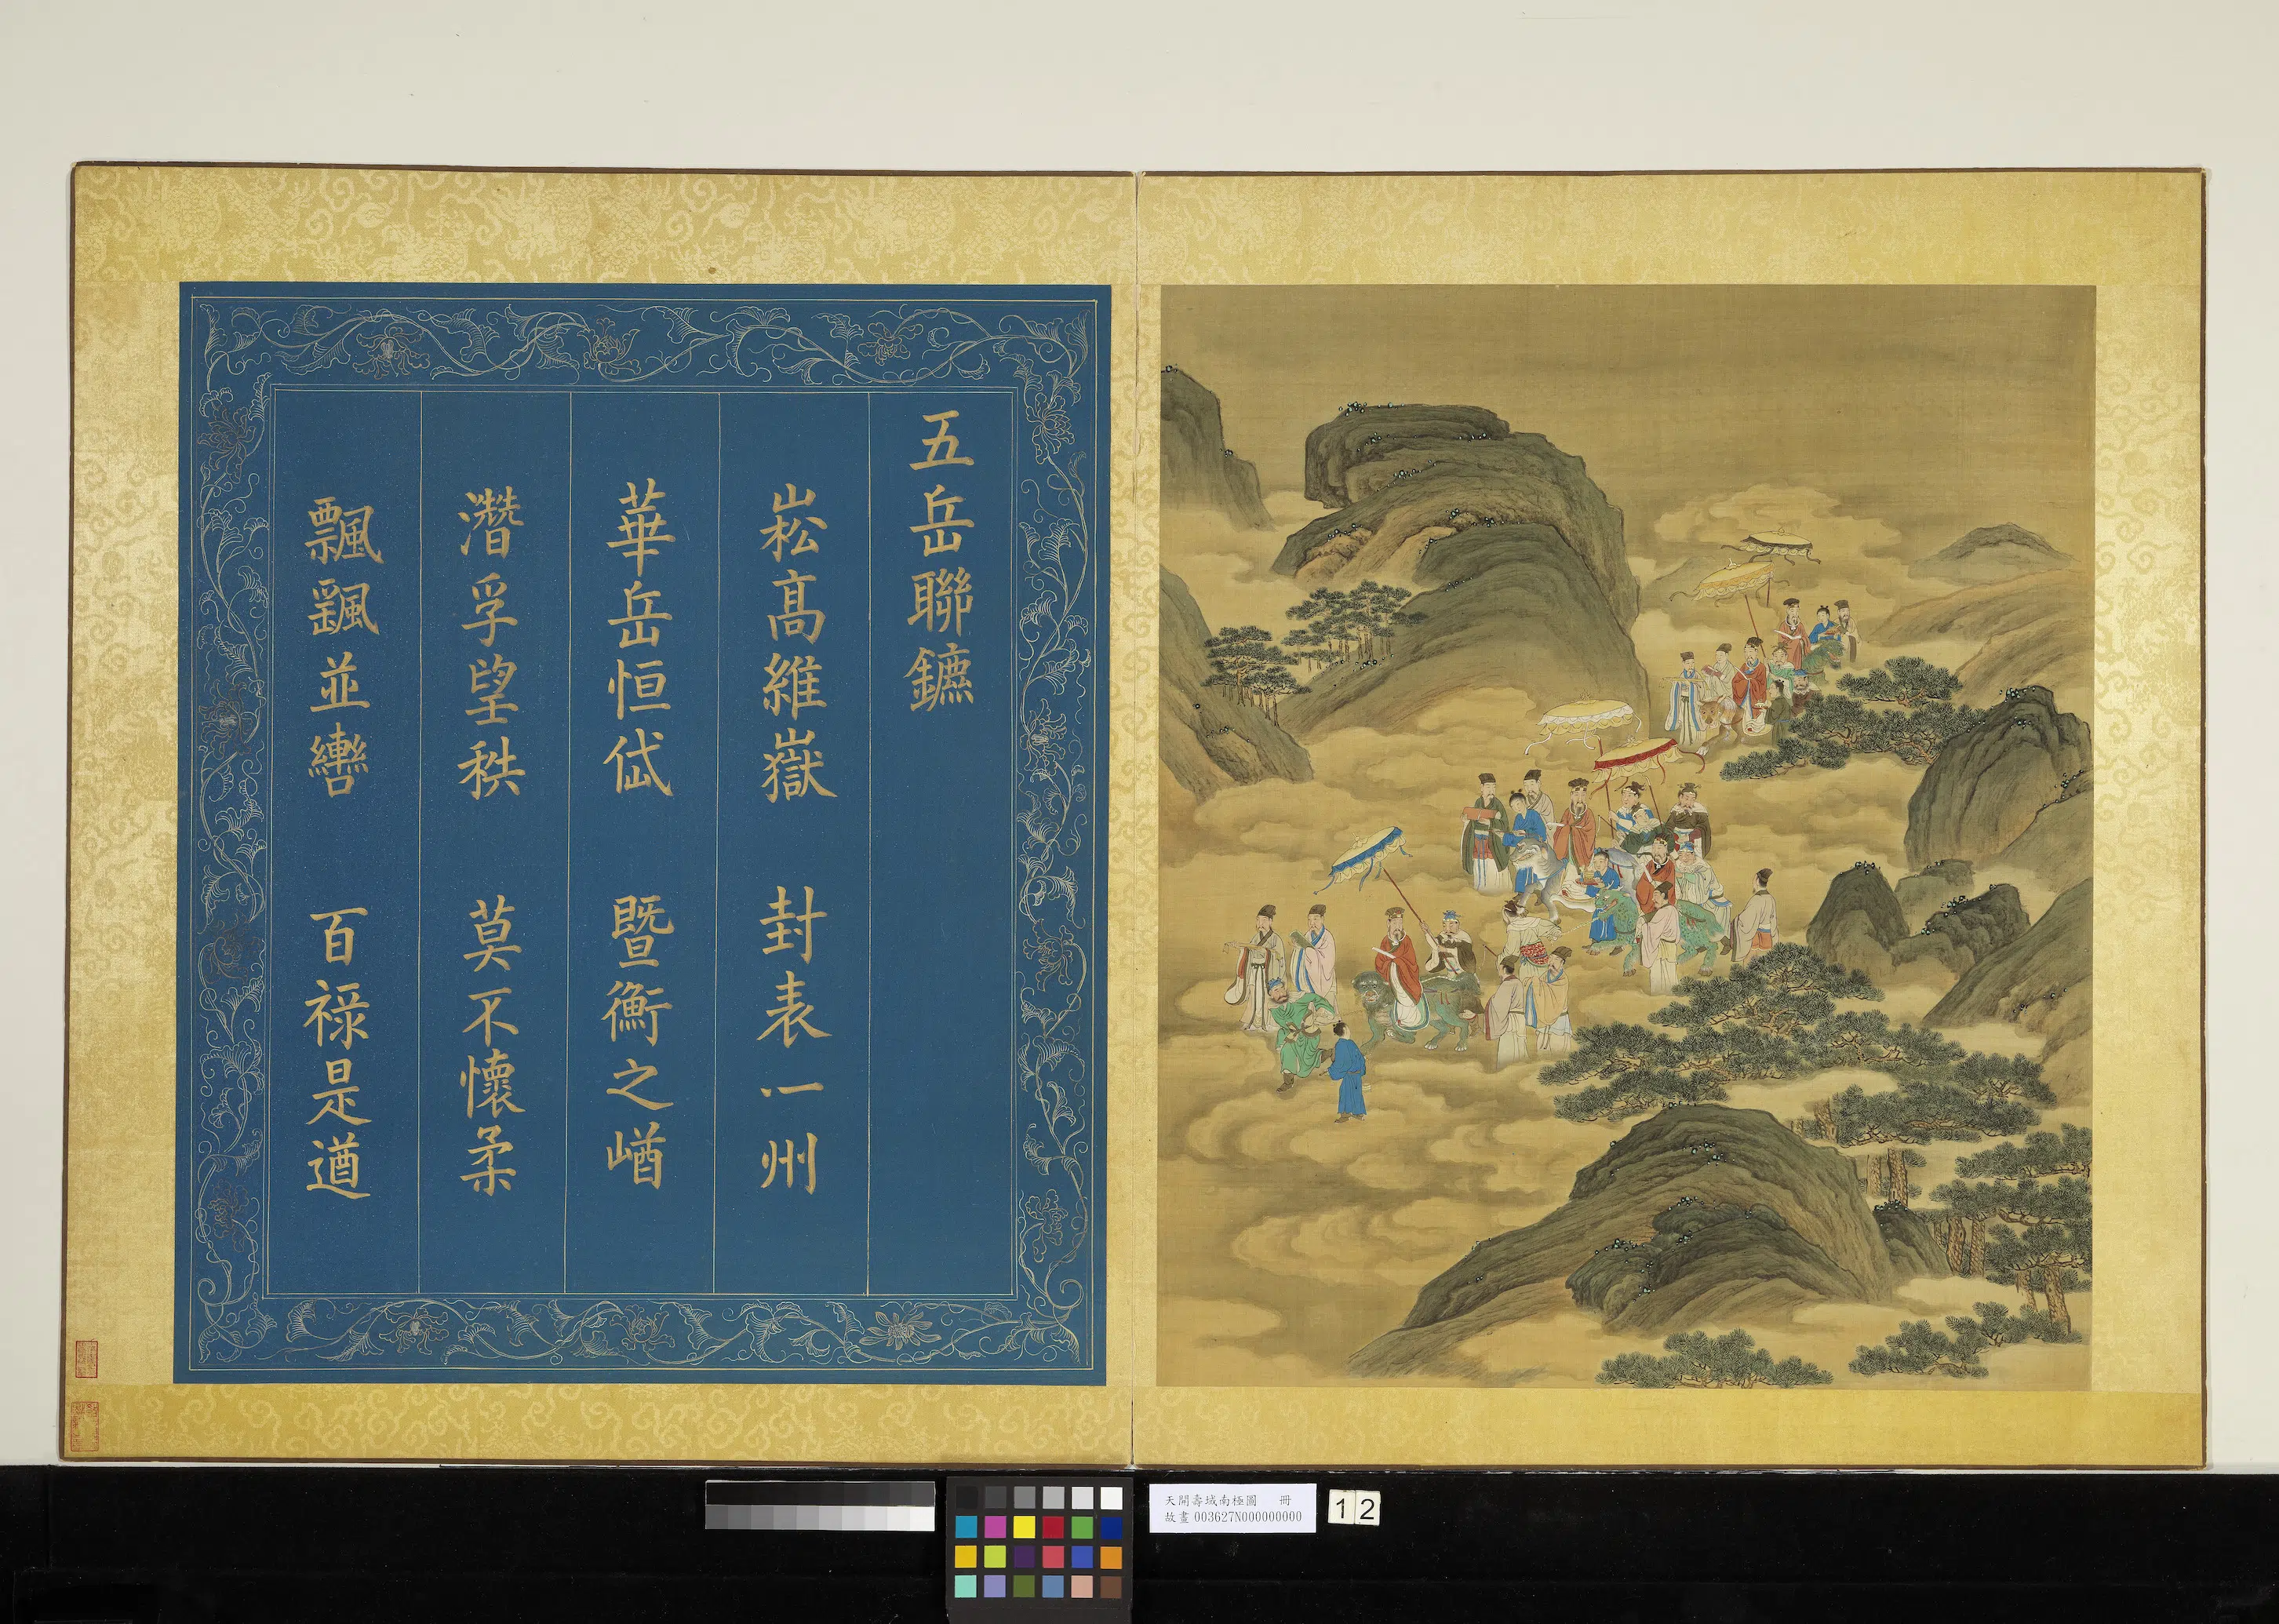 五岳聯鑣
崧高維嶽 封表一州
華岳恒岱 暨衡之崷
濳孚望秩 莫不懷柔
飄颻並轡 百祿是遒
天開壽域南極圖 冊
故畫 003627N000000000
12